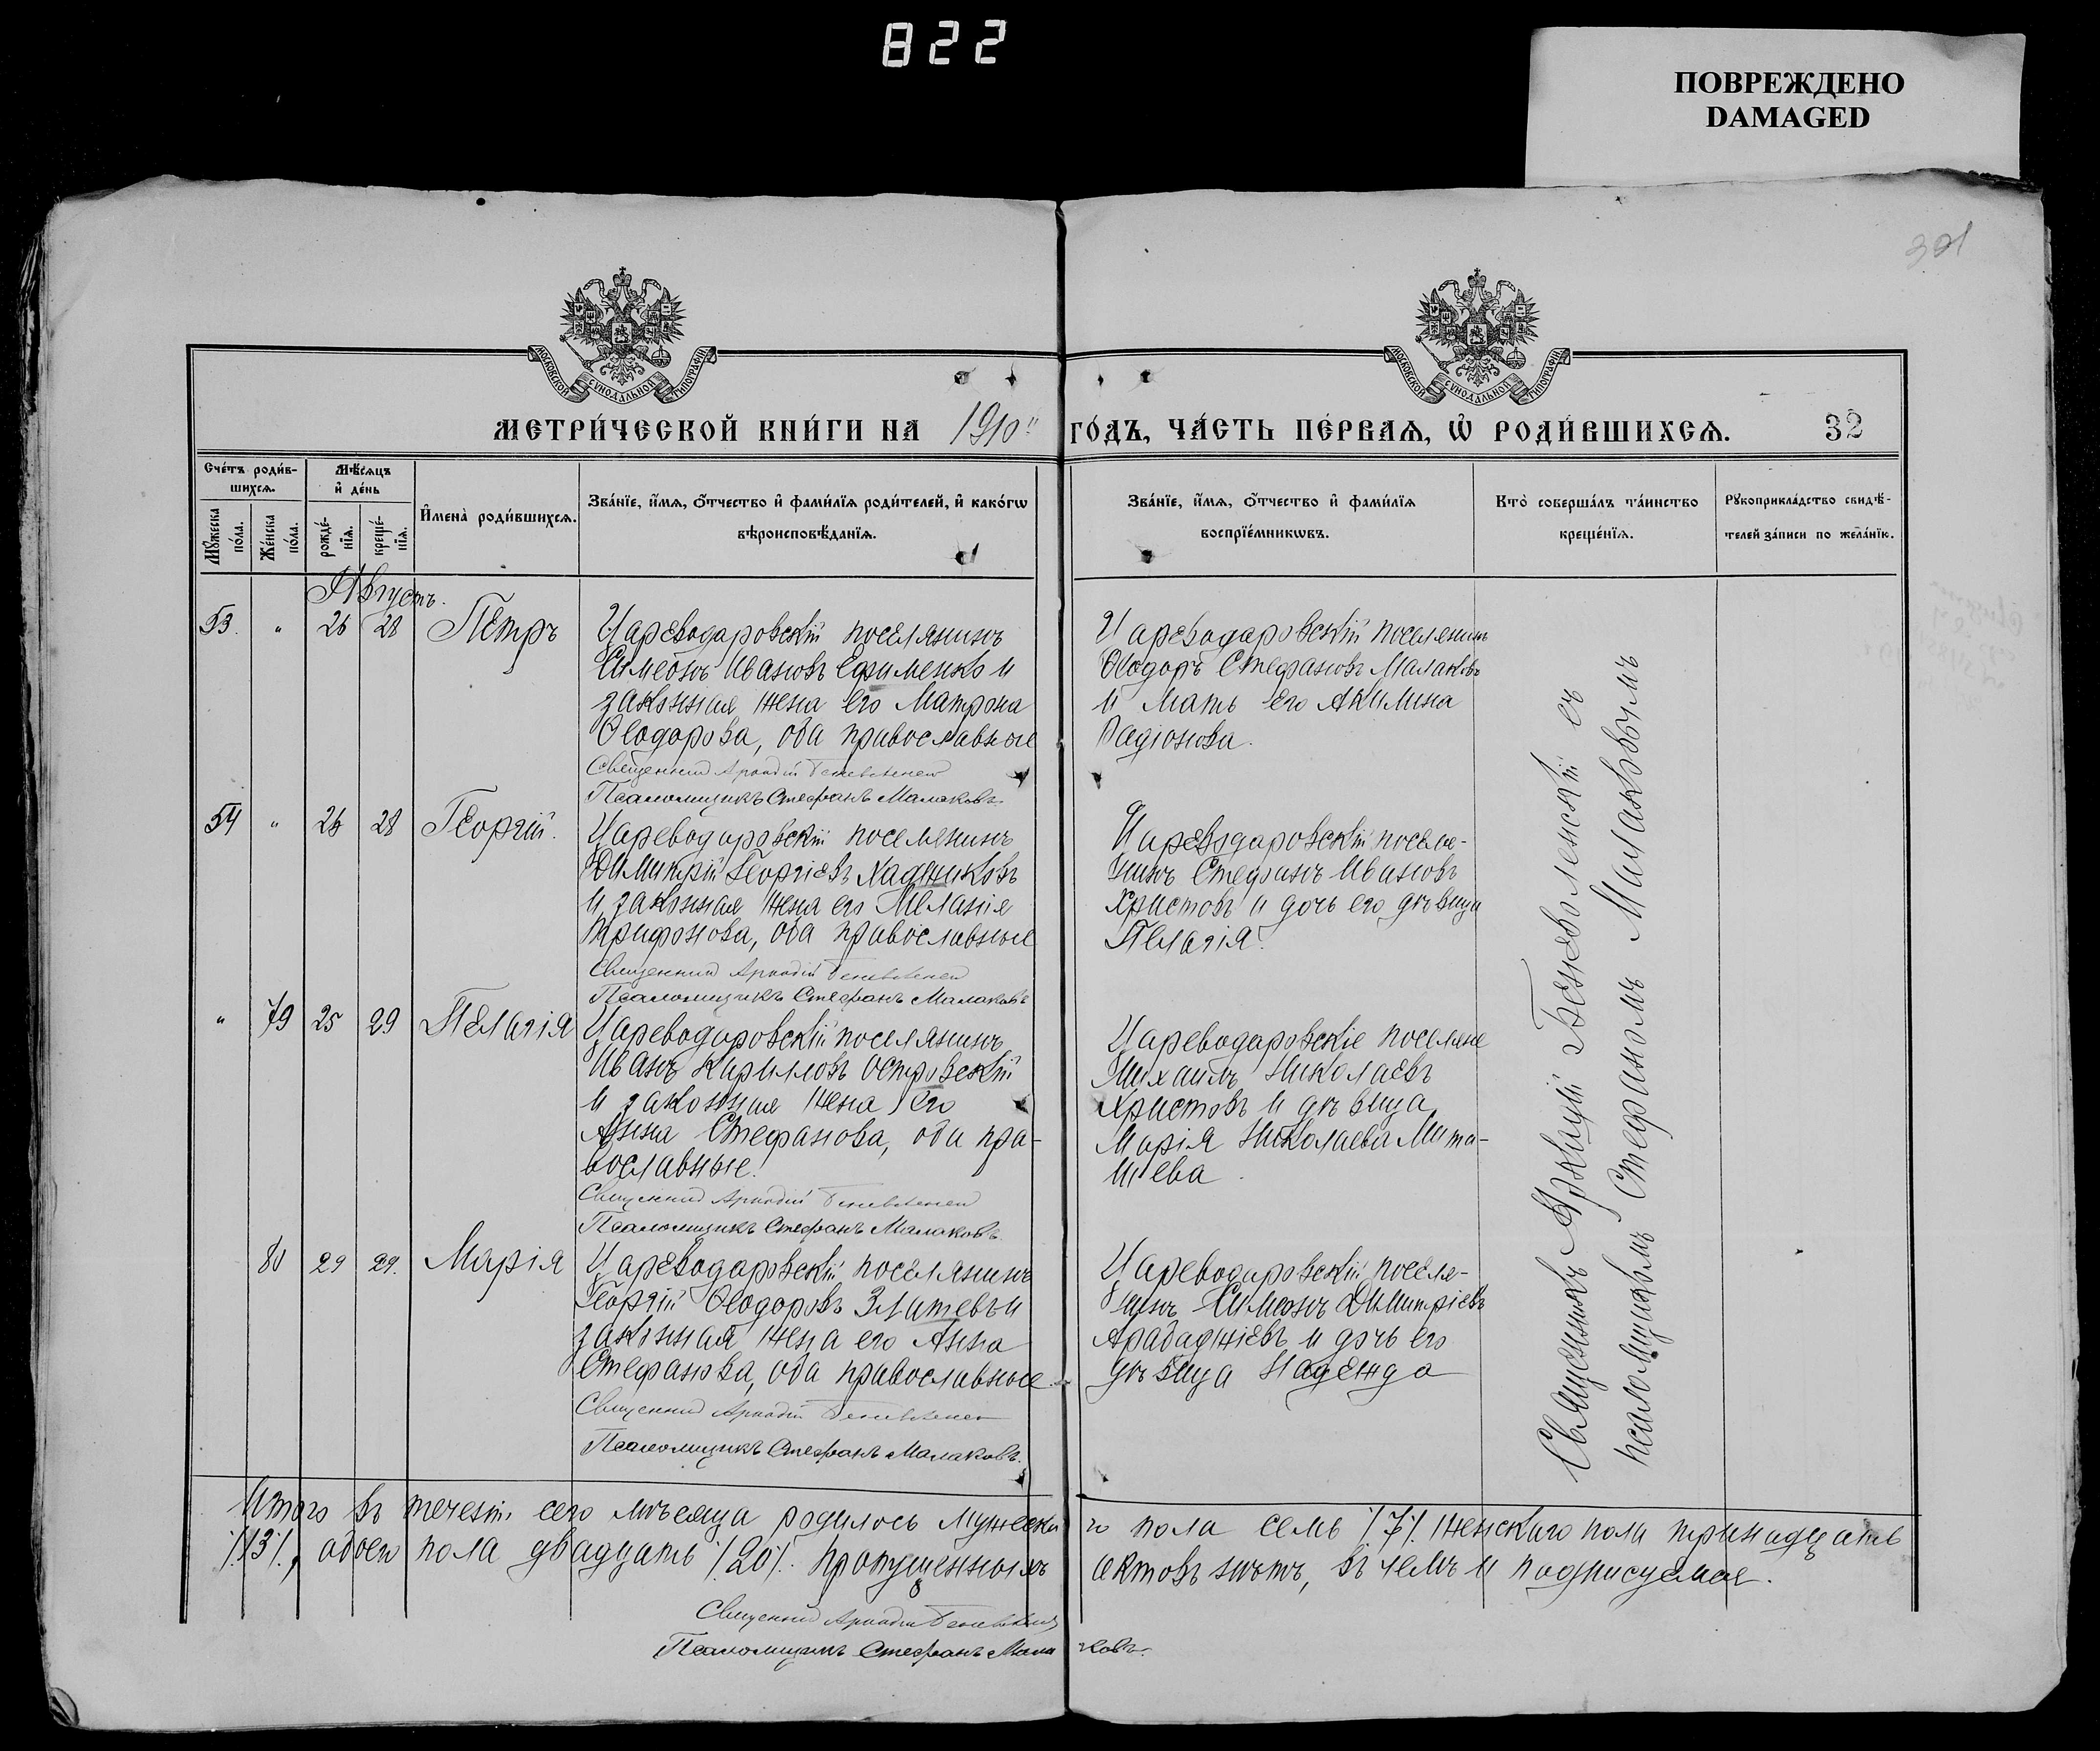 822
ПОВРЕЖДЕНО
DAMAGED
321
МОСКОВСКОЙ СУНОДАЛЬНОЙ ТИПОГРАФІИ
МОСКОВСКОЙ СУНОДАЛЬНОЙ ТИПОГРАФІИ
МЕТРИ́ЧЕСКОЙ КНИ́ГИ НА 1910 ГО́ДЪ, ЧА́СТЬ ПЕ́РВАѦ, Ѡ҆ РОДИ́ВШИХСѦ. 32
Сче́тъ роди́в-
шихсѧ.
Мѣ́сѧцъ
и҆ де́нь
Мꙋ́жеска
по́ла.
Же́нска
по́ла.
рожде́-
нїѧ.
креще́-
нїѧ.
И҆мена̀ роди́вшихсѧ.
Зва́нїе, и҆́мѧ, ѻ҆́тчество и҆ фами́лїѧ роди́телей, и҆ како́гѡ
вѣроисповѣ́данїѧ.
Зва́нїе, и҆́мѧ, ѻ҆́тчество и҆ фами́лїѧ
воспрїе́мникѡвъ.
Кто̀ соверша́лъ та́инство
креще́нїѧ.
Рꙋкоприкла́дство свидѣ́-
телей за́писи по жела́нїю.
Августъ.
53. " 26 28 Петръ
Цареводаровскій поселянинъ
Симеонъ Ивановъ Ефименко и
законная жена его Матрона
Ѳеодорова, оба православные
Священник Аркадій Беневоленскій
Псаломщикъ Стефанъ Малаковъ.
Цареводаровскій поселянинъ
Ѳеодоръ Стефановъ Малаковъ
и мать его Акилина
Радіонова.
54 " 26 28 Георгій.
Цареводаровскій поселянинъ
Димитрій Георгіевъ Хаджиковъ
и законная жена его Меланія
Трифонова, оба православные
Священник Аркадій Беневоленскій
Псаломщикъ Стефанъ Малаковъ
Цареводаровскій поселя-
нинъ Стефанъ Ивановъ
Христовъ и дочь его дѣвица
Пелагія.
" 79 25 29 Пелагія
Цареводаровскій поселянинъ
Иванъ Кирилловъ Островскій
и законная жена его
Анна Стефанова, оба пра-
вославные.
Священник Аркадій Беневоленскій
Псаломщикъ Стефанъ Малаковъ.
Цареводаровскіе поселяне
Михаилъ Николаевъ
Христовъ и дѣвица
Марія Николаева Мита-
шева.
80 29 29. Марія
Цареводаровскій поселянинъ
Георгій Ѳеодоровъ Златевъ и
законная жена его Анна
Стефанова, оба православные
Священник Аркадій Беневоленскій
Псаломщикъ Стефанъ Малаковъ.
Цареводаровскій поселя-
нинъ Симеонъ Димитріевъ
Арабаджіевъ и дочь его
дѣвица Надежда
Священникъ Аркадій Беневоленскій съ
псаломщикомъ Стефаномъ Малаковымъ
Итого въ теченіи сего мѣсяца родилось мужескаго пола семь /7/. женскаго пола тринадцать
/13/, обоего пола двадцать /20/. пропущенныхъ актовъ нѣтъ, въ чемъ и подписуемся.
Священник Аркадій Беневоленскій
Псаломщикъ Стефанъ Малаковъ.